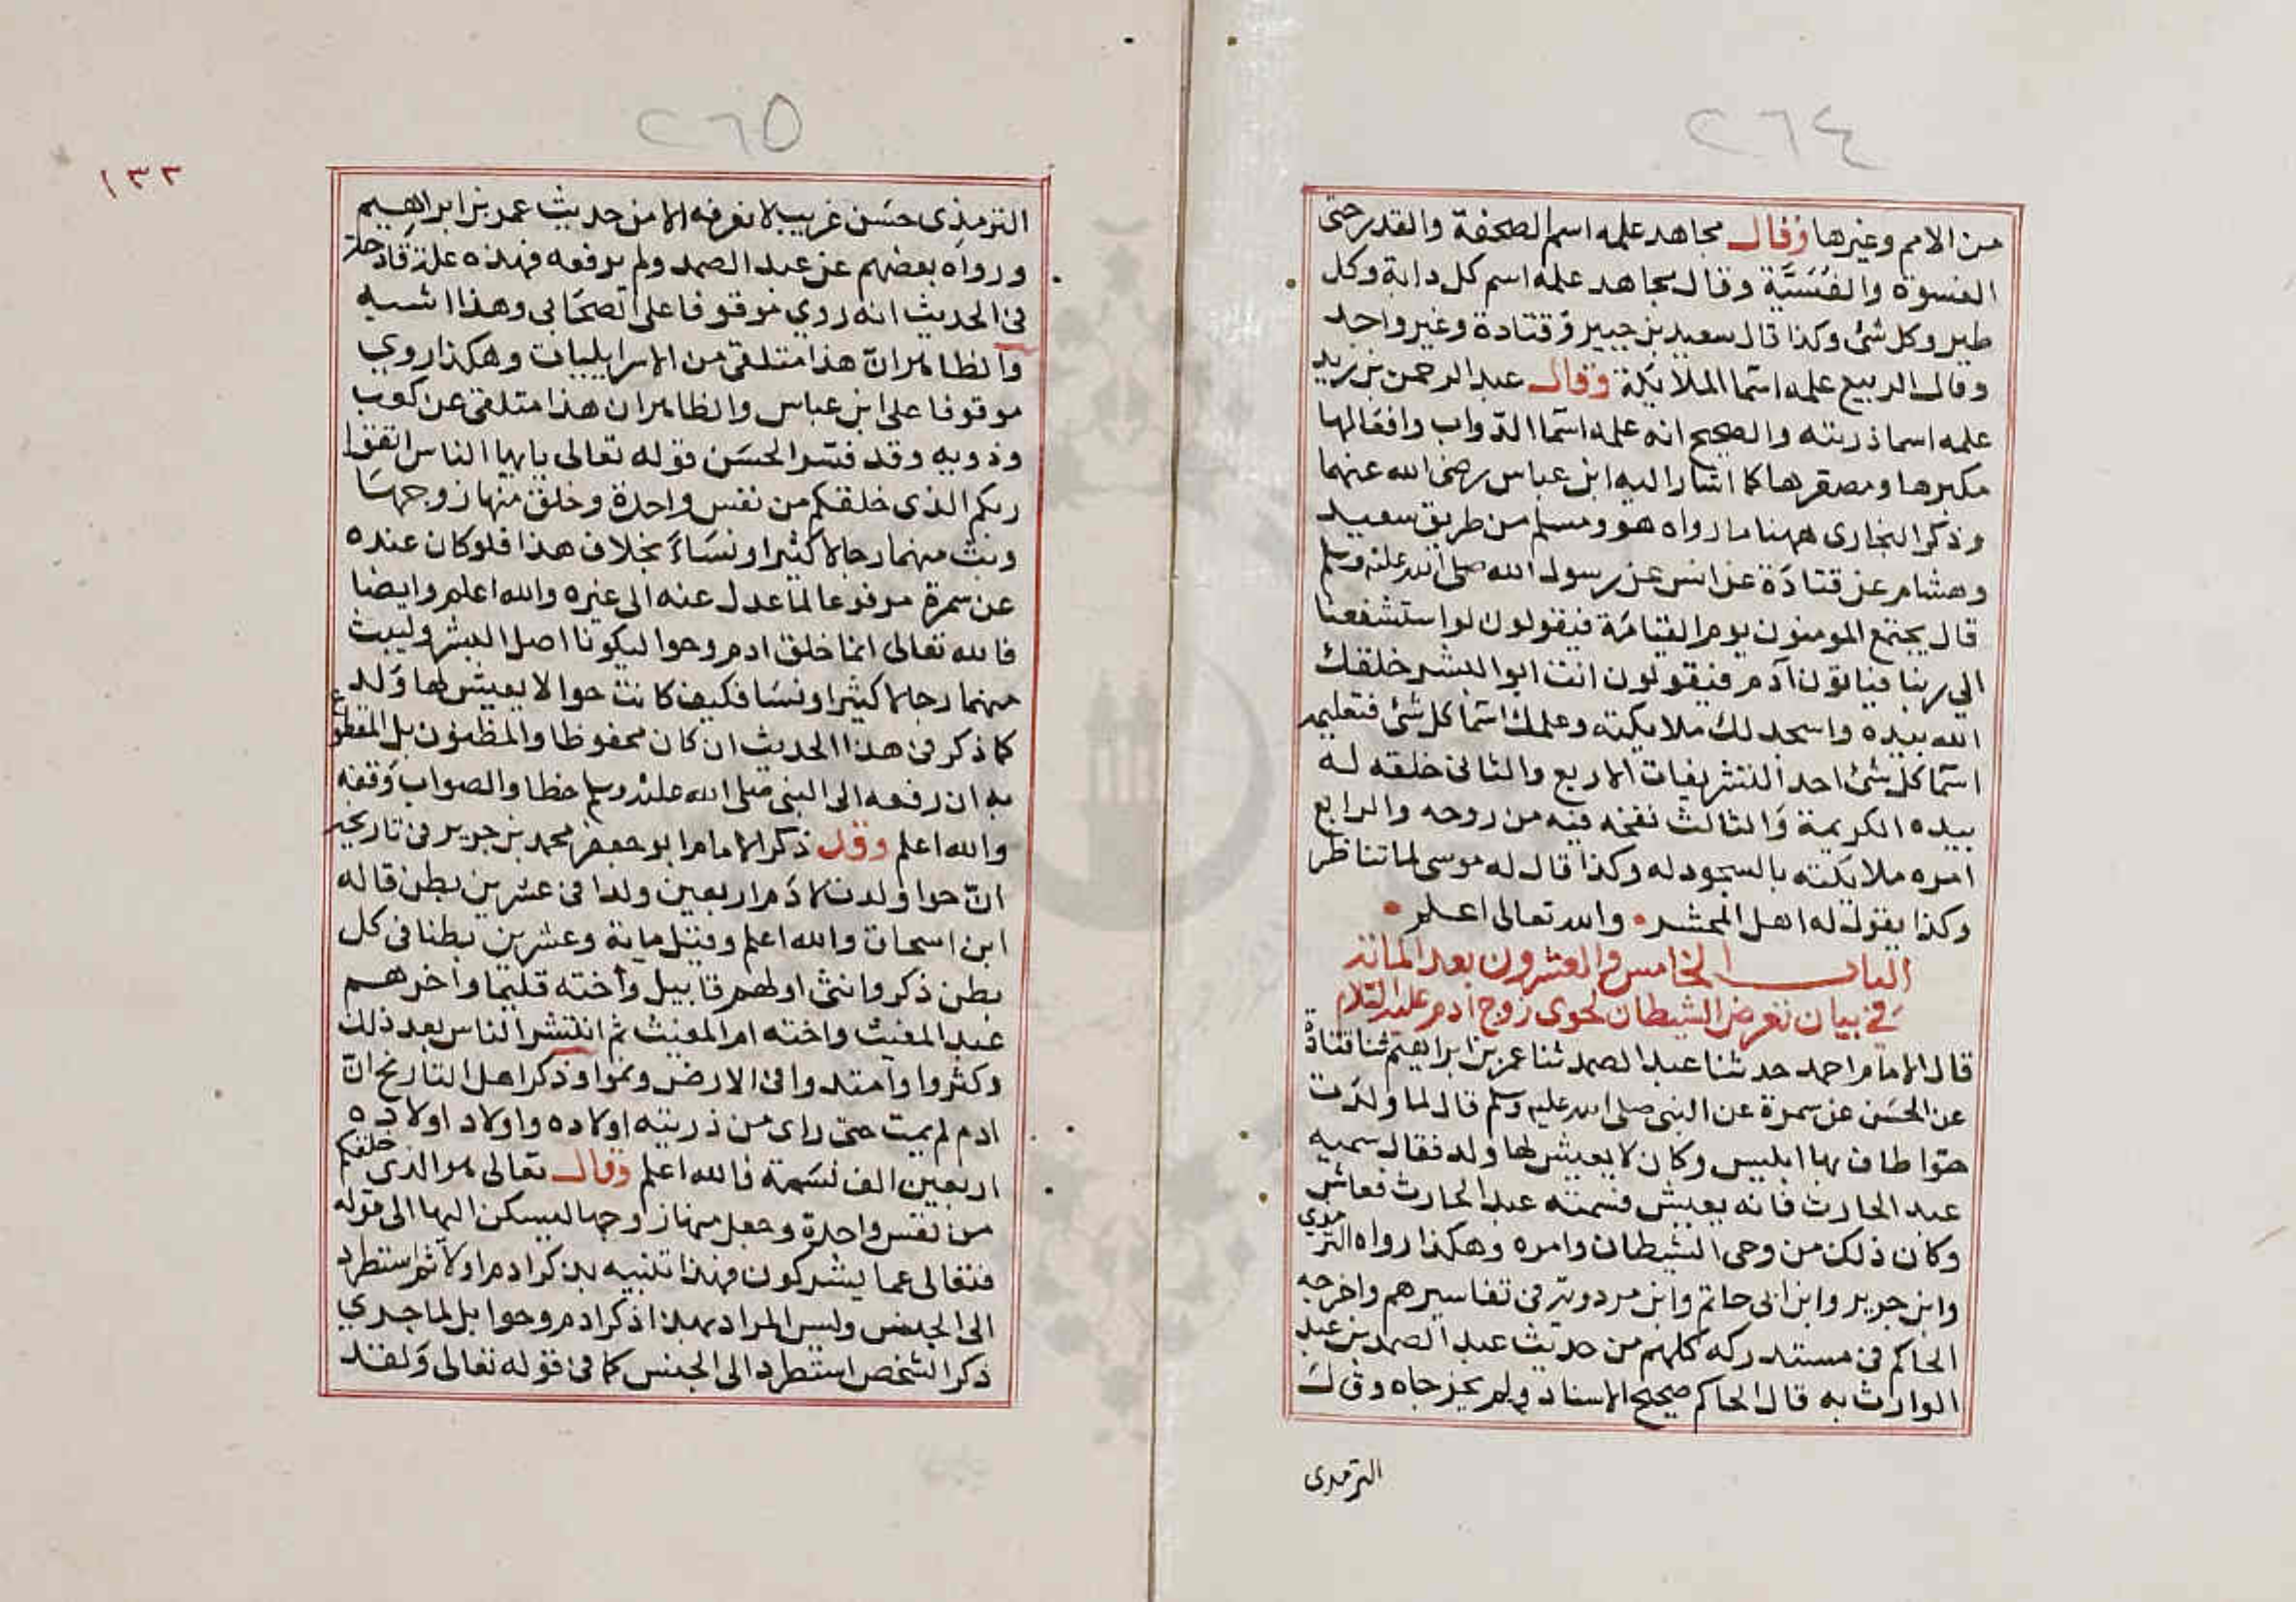 ٢٦٤
من الامم وغيرها وقال مجاهد علمه اسم الصحفة والقدر حتى
الفسوة والفُسَيَّة وقال مجاهد علمه اسم كل دابة وكل
طير وكل شئ وكذا قال سعيد بن جبير وقتادة وغير واحد
وقال الربيع علمه اسما الملايكة وقال عبد الرحمن بن زيد
علمه اسما ذريته والصحيح انه علمه اسما الدواب وافعالها
مكبرها ومصغرها كما اشار اليه ابن عباس رضى الله عنهما
وذكر البخارى ههنا ما رواه هو ومسلم من طريق سعيد
وهشام عن قتادة عن انس عن رسول الله صلى الله عليه وسلم
قال يجتمع المومنون يوم القيامة فيقولون لو استشفعنا
الى ربنا فياتون آدم فيقولون انت ابو البشر خلقك
الله بيده واسجد لك ملايكته وعلمك اسما كل شئ فتعليمه
اسما كل شئ احد التشريفات الاربع والثانى خلقه له
بيده الكريمة والثالث نفخه فيه من روحه والرابع
امره ملايكته بالسجود له وكذا قال له موسى لما تناظر
وكذا يقول له اهل المحشر والله تعالى اعلم
الباب الخامس والعشرون بعد المائة
في بيان تعرض الشيطان لحوى زوج ادم عليه السلام
قال الامام احمد حدثنا عبد الصمد ثنا عمر بن ابراهيم ثنا قتادة
عن الحسن عن سمرة عن النبى صلى الله عليه وسلم قال لما ولدت
حوا طاف بها ابليس وكان لا يعيش لها ولد فقال سميه
عبد الحارث فانه يعيش فسمته عبد الحارث فعاش
وكان ذلك من وحى الشيطان وامره وهكذا رواه الترمذي
وابن جرير وابن ابى حاتم وابن مردويه فى تفاسيرهم واخرجه
الحاكم فى مستدركه كلهم من حديث عبد الصمد بن عبد
الوارث به قال الحاكم صحيح الاسناد ولم يخرجاه وقال
الترمدى
٢٦٥
١٣٢
الترمذى حسن غريب لا نعرفه الا من حديث عمر بن ابراهيم
ورواه بعضهم عن عبد الصمد ولم يرفعه فهذه علة قادحة
فى الحديث انه روي موقوفا على الصحابى وهذا اشبه
والظاهر ان هذا متلقى من الاسرايليات وهكذا روي
موقوفا على ابن عباس والظاهر ان هذا متلقى عن كعب
وذويه وقد فسر الحسن قوله تعالى يايها الناس اتقوا
ربكم الذى خلقكم من نفس واحدة وخلق منها زوجها
وبث منهما رجالا كثيرا ونساء بخلاف هذا فلو كان عنده
عن سمرة مرفوعا لما عدل عنه الى غيره والله اعلم وايضا
فالله تعالى انما خلق ادم وحوا ليكونا اصل البشر وليبث
منهما رجالا كثيرا ونسا فكيف كانت حوا لا يعيش لها ولد
كما ذكر فى هذا الحديث ان كان محفوظا والمظنون بل المقطوع
به ان رفعه الى النبى صلى الله عليه وسلم خطا والصواب وقفه
والله اعلم وقد ذكر الامام ابو جعفر محمد بن جرير فى تاريخه
ان حوا ولدت لادم اربعين ولدا فى عشرين بطن قاله
ابن اسحاق والله اعلم وقيل ماية وعشرين بطنا فى كل
بطن ذكر وانثى اولهم قابيل وأخته قليما واخرهم
عبد المغيث واخته ام المغيث ثم انتشر الناس بعد ذلك
وكثروا وامتدوا فى الارض ونموا وذكر اهل التاريخ ان
ادم لم يمت حتى راى من ذريته اولاده واولاد اولاده
اربعين الف نسمة فالله اعلم وقال تعالى هو الذى خلقكم
من نفس واحدة وجعل منها زوجها ليسكن اليها الى قوله
فتعالى عما يشركون فهذا تنبيه بذكر ادم اولا ثم استطرد
الى الجنس وليس المراد بهذا ذكر ادم وحوا بل لما جرى
ذكر الشخص استطرد الى الجنس كما فى قوله تعالى ولقد